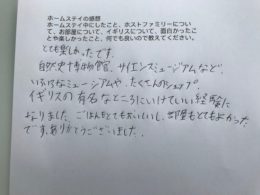 ホームステイの感想
ホームステイ中にしたこと、ホストファミリーについ
て、お部屋について、イギリスについて、面白かったこ
とや楽しかったこと、何でも良いので教えてください。
とても楽しかったです。
自然史博物館、サイエンスミュージアムなど、
いろいろなミュージアムや、たくさんのショップ
イギリスの有名なところにいけていい経験に
なりました。ごはんもとてもおいしいし、部屋もとてもよかった
です。ありがとうございました。